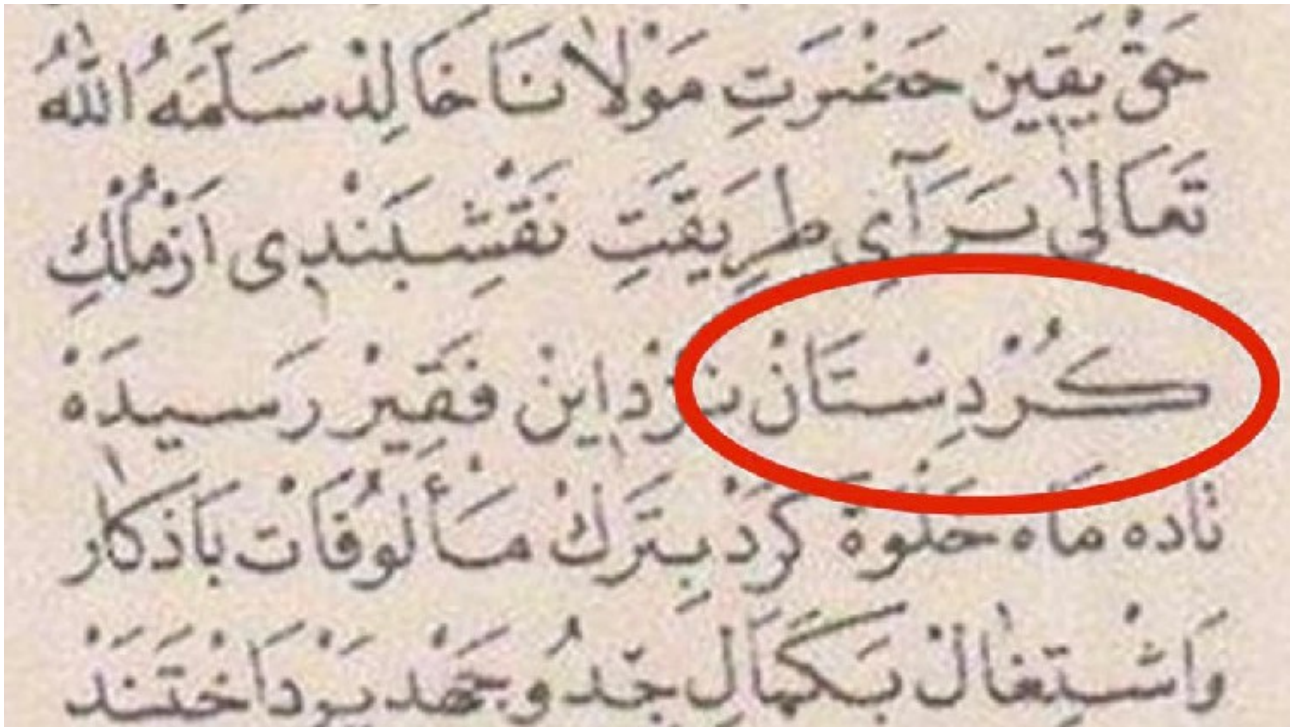 حَقْ يَقِين حَضْرَتِ مَوْلَانَا خَالِدْ سَلَّمَهُ اللّٰهُ
تَعَالٰى بَرَآيِ طَرِيقَتِ نَقْشِبَنْدِى اَزْمُلْكِ
كُرْدِسْتَانْ نَزْدِاِينْ فَقِيرْ رَسِيدَهْ
تَادَه مَاه خَلْوَةْ كَرْدْ بِتَرْكْ مَأْلُوفَاتْ بَاَذْكَار
وَاشْتِغَالْ بَكَمَالِ جِدُّ وجَهْد پَرْدَاخْتَنَدْ